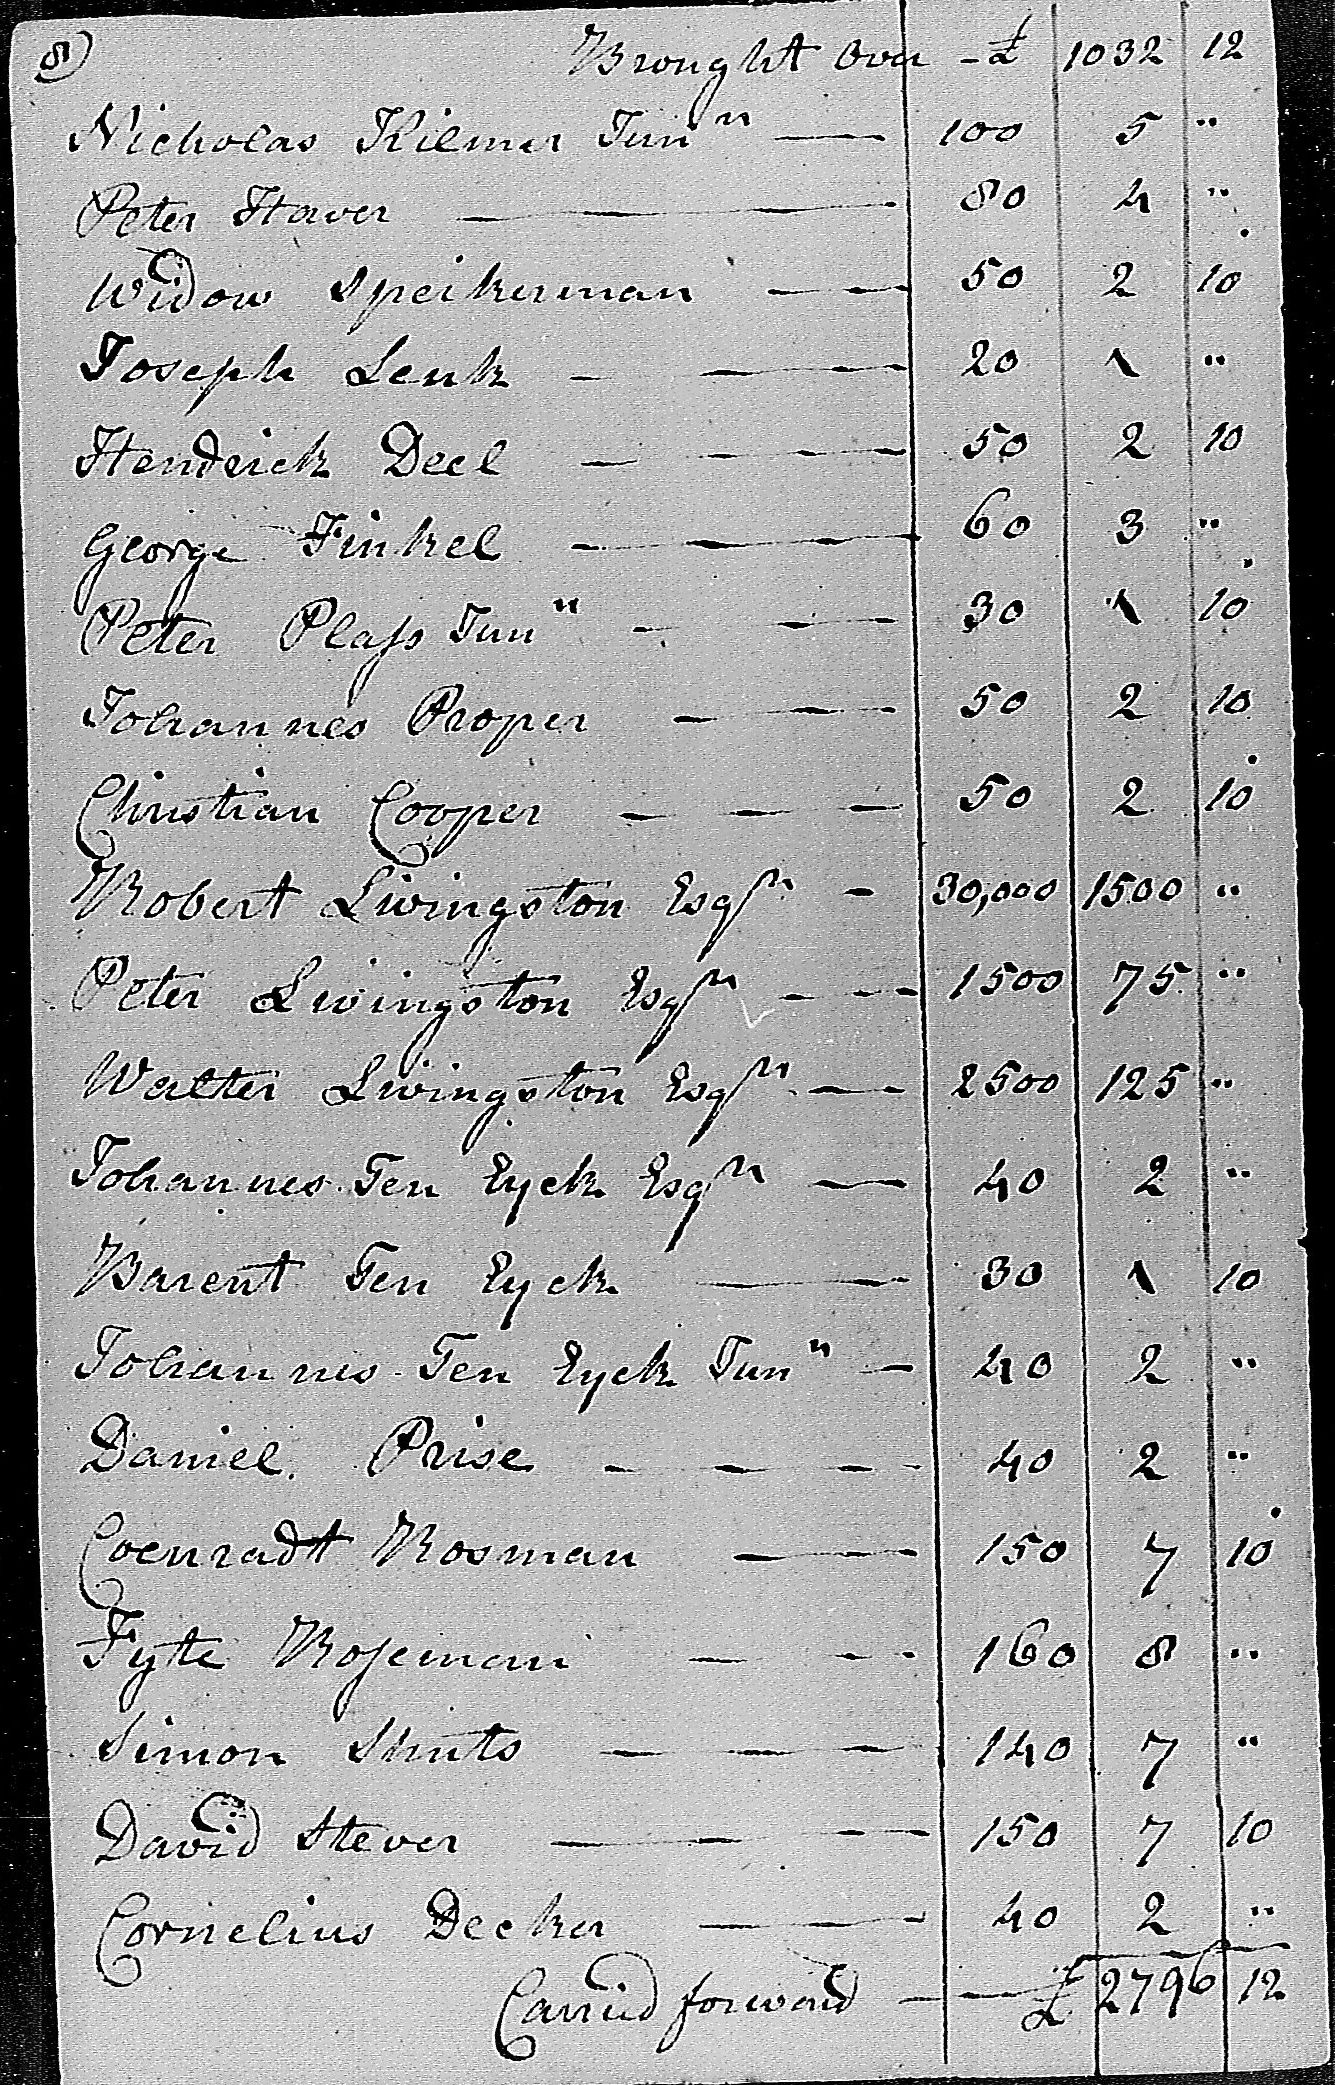 8)
Brought Over - £ 1032 12
Nicholas Kilmer Junr — 100 5 "
Peter Haver — 80 4 "
Widow Speikerman — 50 2 10
Joseph Lenk — 20 1 "
Hendrick Decl — 50 2 10
George Finkel — 60 3 "
Peter Plass Junr — 30 1 10
Johannes Proper — 50 2 10
Christian Cooper — 50 2 10
Robert Livingston Esqr — 30,000 1500 "
Peter Livingston Esqr — 1500 75 "
Walter Livingston Esqr — 2500 125 "
Johannes Ten Eyck Esqr — 40 2 "
Barent Ten Eyck — 30 1 10
Johannes Ten Eyck Junr — 40 2 "
Daniel Prise — 40 2 "
Coenradt Rosman — 150 7 10
Fyte Roseman — 160 8 "
Simon Shuts — 140 7 "
David Stever — 150 7 10
Cornelius Decker — 40 2 "
Carried forward — £ 2796 12